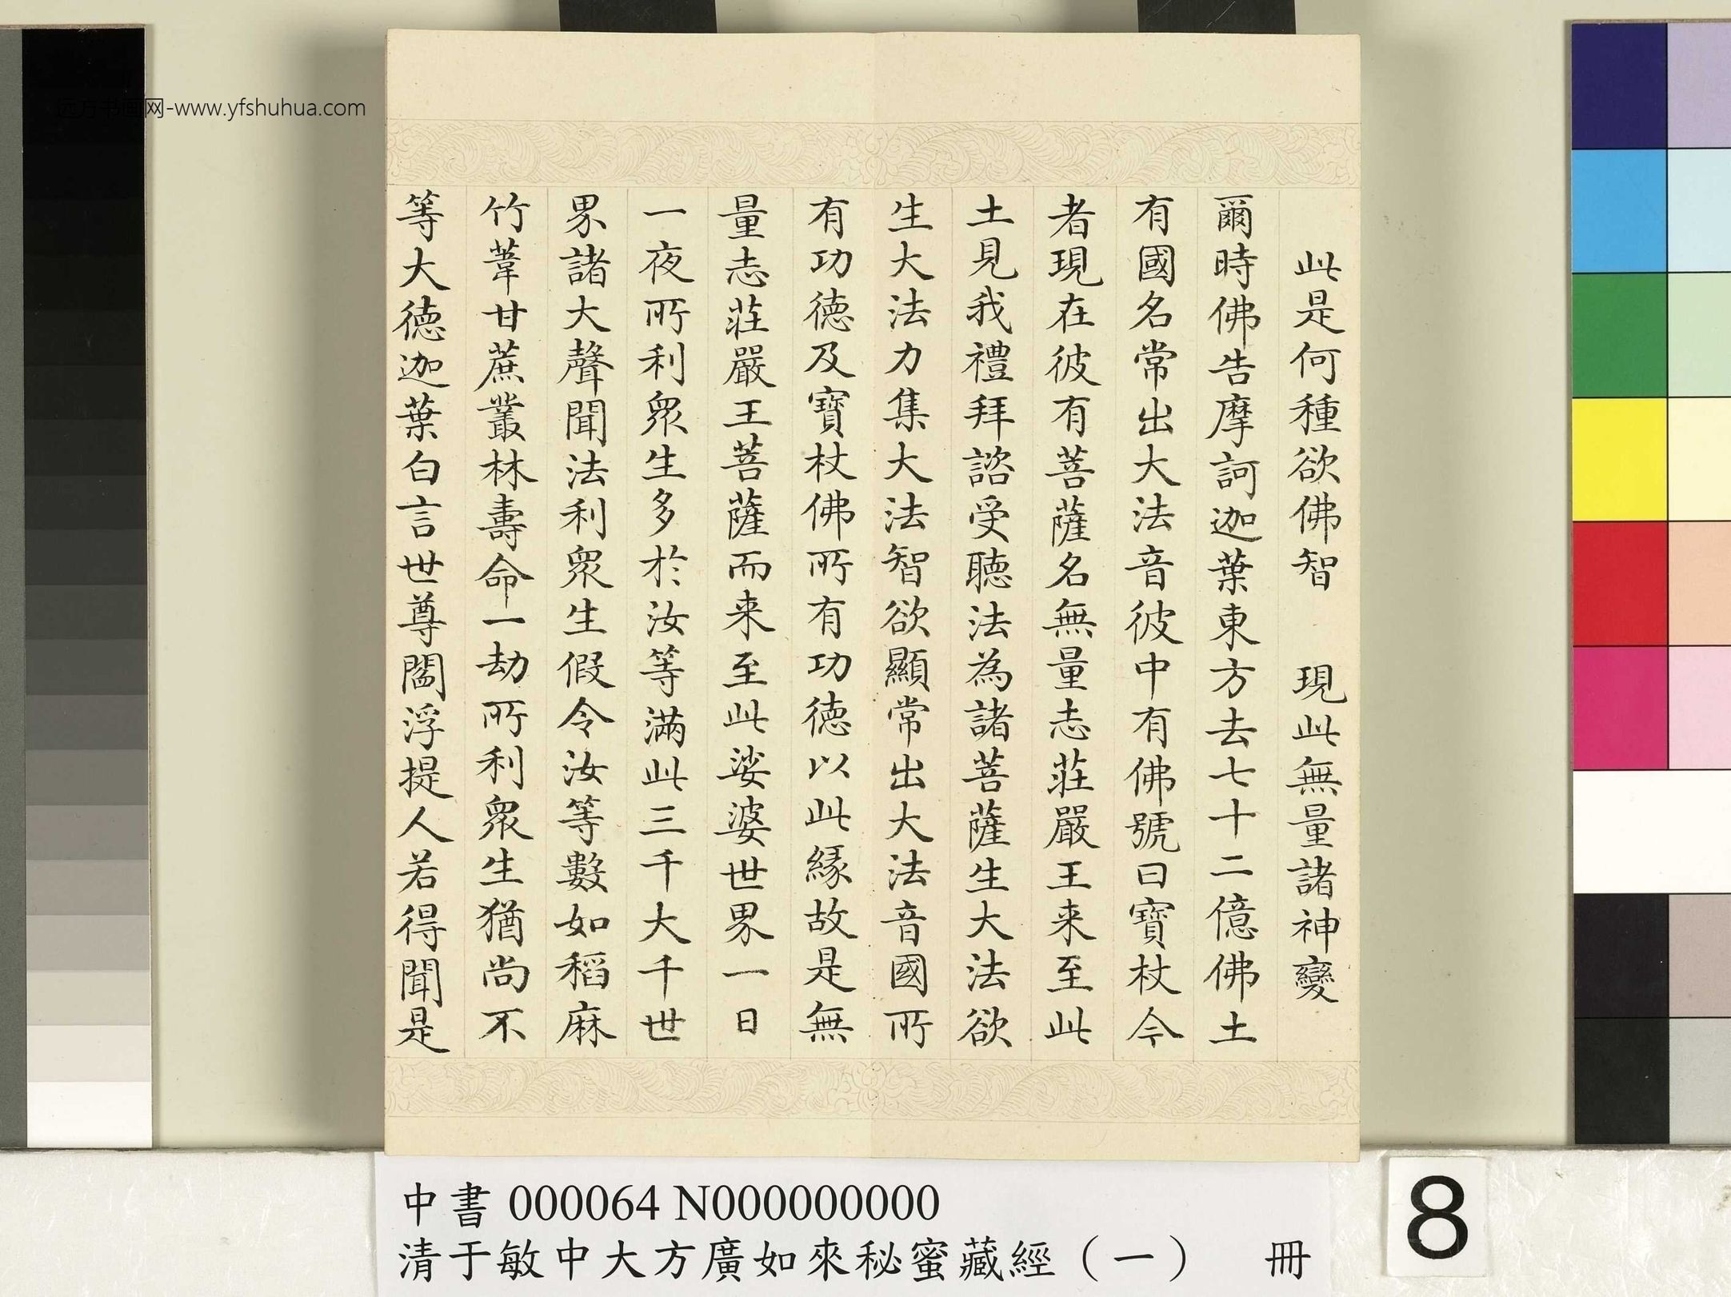 此是何種欲佛智　現此無量諸神變
爾時佛告摩訶迦葉東方去七十二億佛土
有國名常出大法音彼中有佛號曰寶杖今
者現在彼有菩薩名無量志莊嚴王来至此
土見我禮拜諮受聽法為諸菩薩生大法欲
生大法力集大法智欲顯常出大法音國所
有功德及寶杖佛所有功德以此緣故是無
量志莊嚴王菩薩而来至此娑婆世界一日
一夜所利衆生多於汝等滿此三千大千世
界諸大聲聞法利衆生假令汝等數如稻麻
竹葦甘蔗叢林壽命一劫所利衆生猶尚不
等大德迦葉白言世尊閻浮提人若得聞是
中書 000064 N000000000
清于敏中大方廣如來秘蜜藏經（一）　冊
8
书画网-www.yfshuhua.com